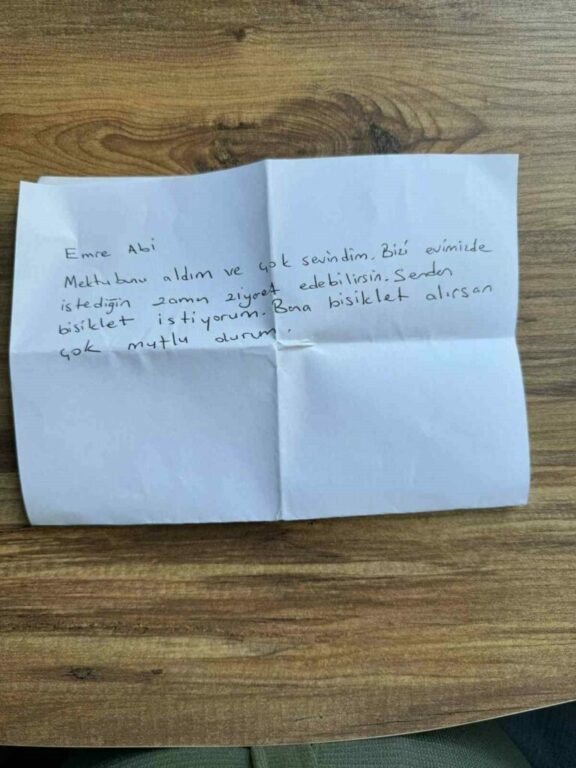 Emre Abi
Mektubunu aldım ve çok sevindim. Bizi evimizde
istediğin zaman ziyaret edebilirsin. Senden
bisiklet istiyorum. Bana bisiklet alırsan
çok mutlu olurum.